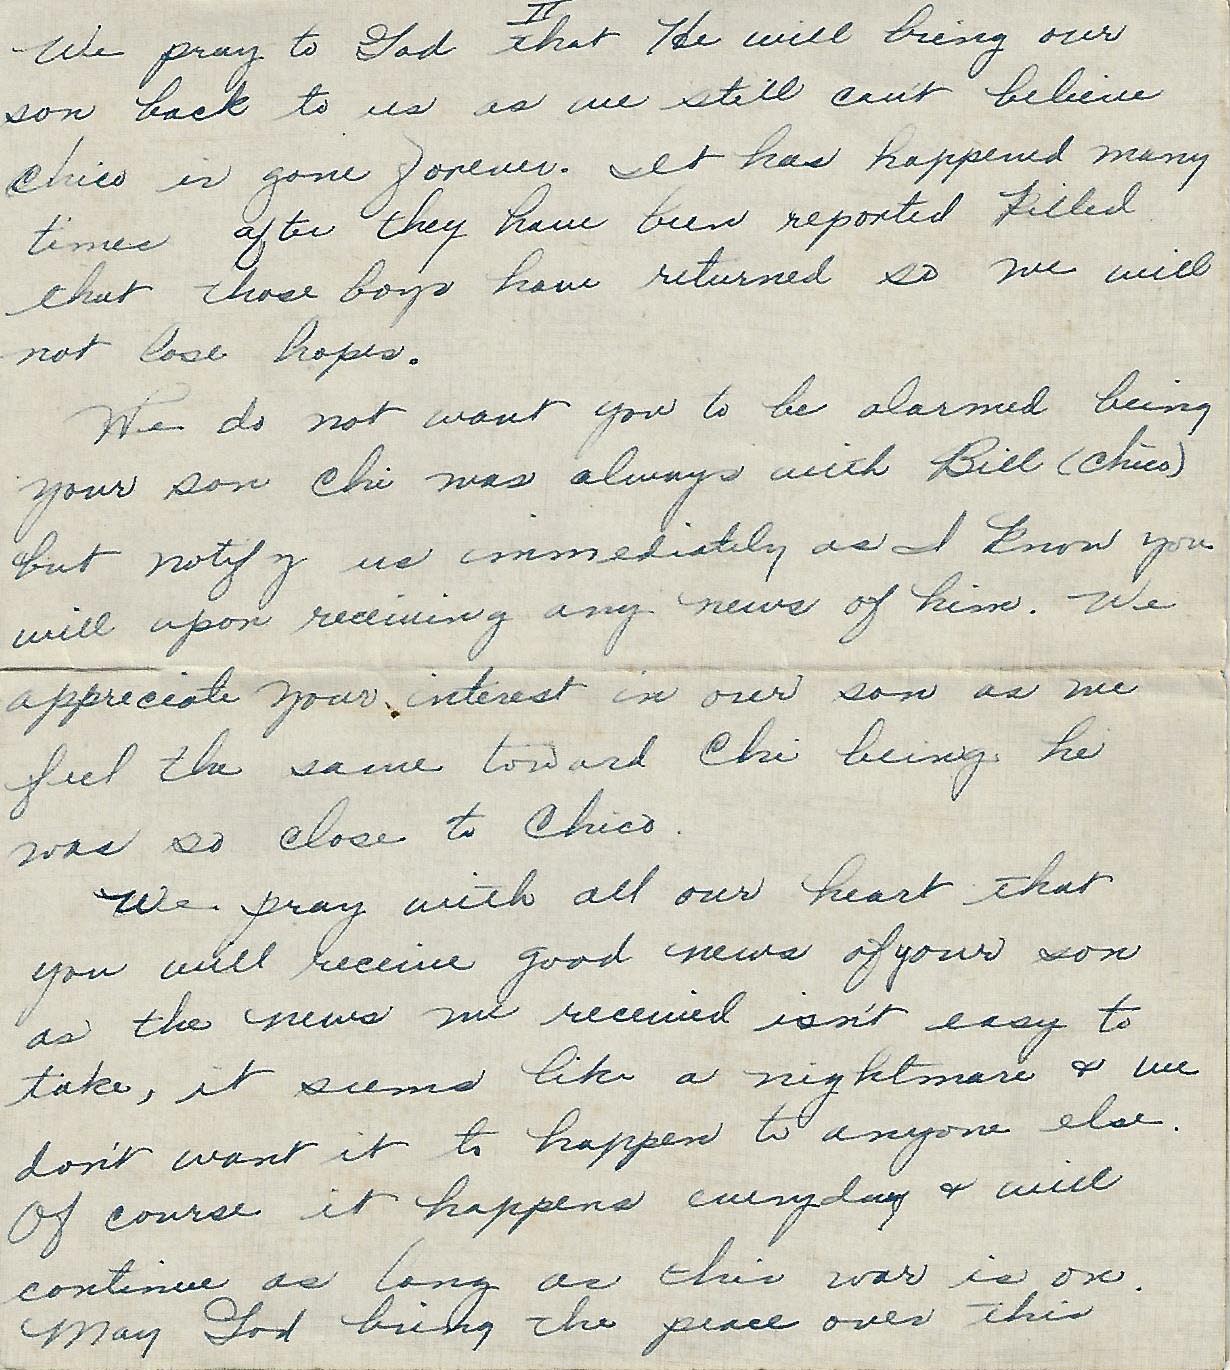 II
We pray to God that He will bring our
son back to us as we still can't believe
Chico is gone forever. It has happened many
times after they have been reported killed
that those boys have returned so we will
not lose hopes.
We do not want you to be alarmed being
your son Chi was always with Bill (Chico)
but notify us immediately as I know you
will upon receiving any news of him. We
appreciate your interest in our son as we
feel the same toward Chi being he
was so close to Chico.
We pray with all our heart that
you will receive good news of your son
as the news we received isn't easy to
take, it seems like a nightmare & we
don't want it to happen to anyone else.
Of course it happens everyday & will
continue as long as this war is on.
May God bring the peace over this